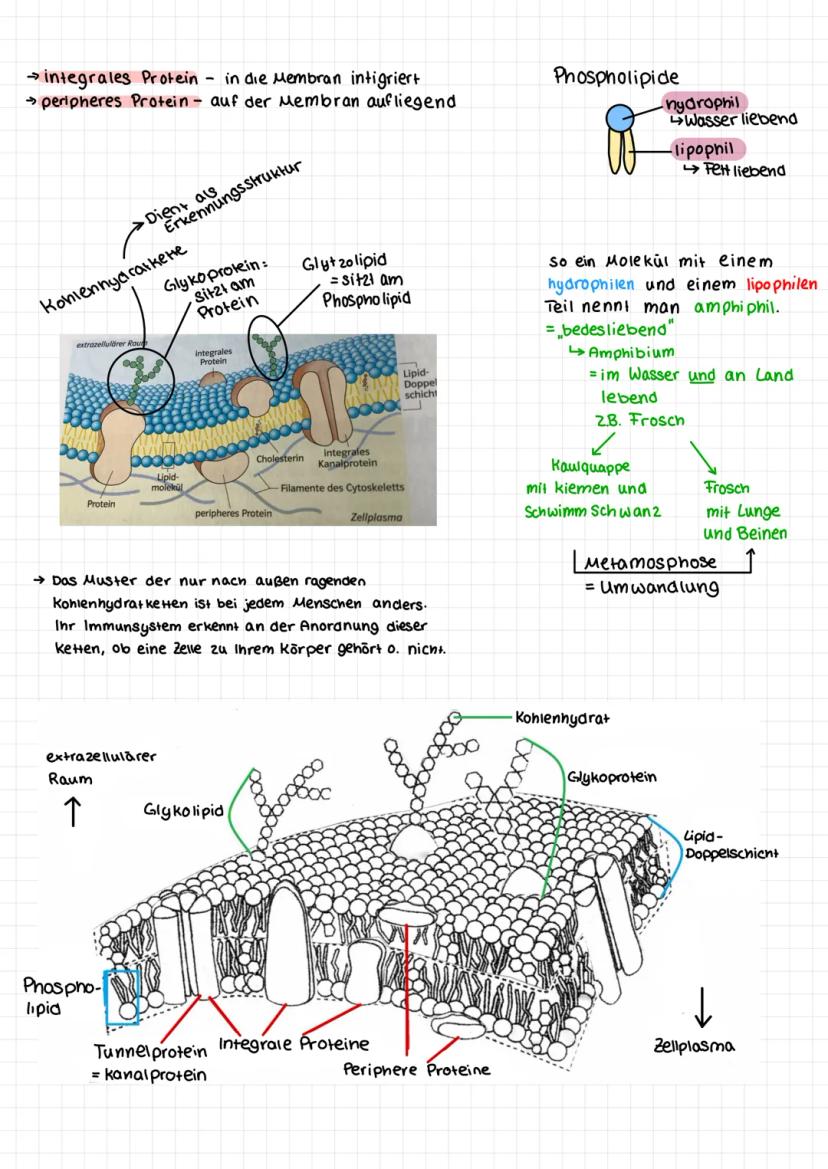 → integrales Protein - in die Membran intigriert
→ peripheres Protein - auf der Membran aufliegend
Phospholipide
hydrophil
↳ Wasser liebend
lipophil
↳ Fett liebend
→ Dient als
Erkennungsstruktur
Kohlenhydratkette
Glykoprotein:
sitzt am
Protein
Glytzolipid
= sitzt am
Phospholipid
extrazellulärer Raum
integrales
Protein
Lipid-
Doppel
schicht
Cholesterin
Integrales
Kanalprotein
Lipid-
molekül
Filamente des Cytoskeletts
Protein
peripheres Protein
Zellplasma
so ein Molekül mit einem
hydrophilen und einem lipophilen
Teil nennt man amphiphil.
= „bedesliebend"
↳ Amphibium
= im Wasser und an Land
lebend
z.B. Frosch
Kaulquappe
mit kiemen und
Schwimm Schwanz
Frosch
mit Lunge
und Beinen
Metamosphose
= Umwandlung
→ Das Muster der nur nach außen ragenden
Kohlenhydratketten ist bei jedem Menschen anders.
Ihr Immunsystem erkennt an der Anordnung dieser
Ketten, ob eine Zelle zu Ihrem Körper gehört o. nicht.
Kohlenhydrat
extrazellulärer
Raum
Glykoprotein
Glykolipid
Lipid-
Doppelschicht
Phospho-
lipid
Tunnelprotein
= Kanalprotein
Integrale Proteine
Periphere Proteine
Zellplasma